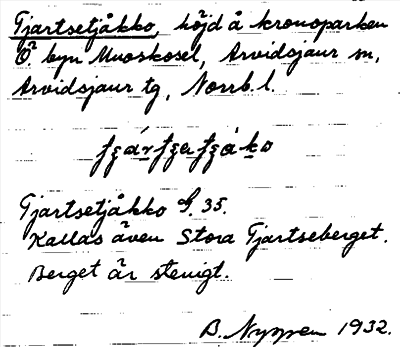 Tjartsetjåkko, höjd å kronoparken
Ö. byn Muoskosel, Arvidsjaur sn,
Arvidsjaur tg, Norrb. l.
Tjartsetjåkko G. 35.
Kallas även Stora Tjartseberget.
Berget är stenigt.
B. Nyppen 1932.